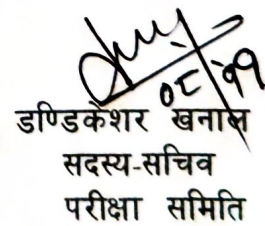 ०८/११
डण्डिकेशर खनाल
सदस्य-सचिव
परीक्षा समिति